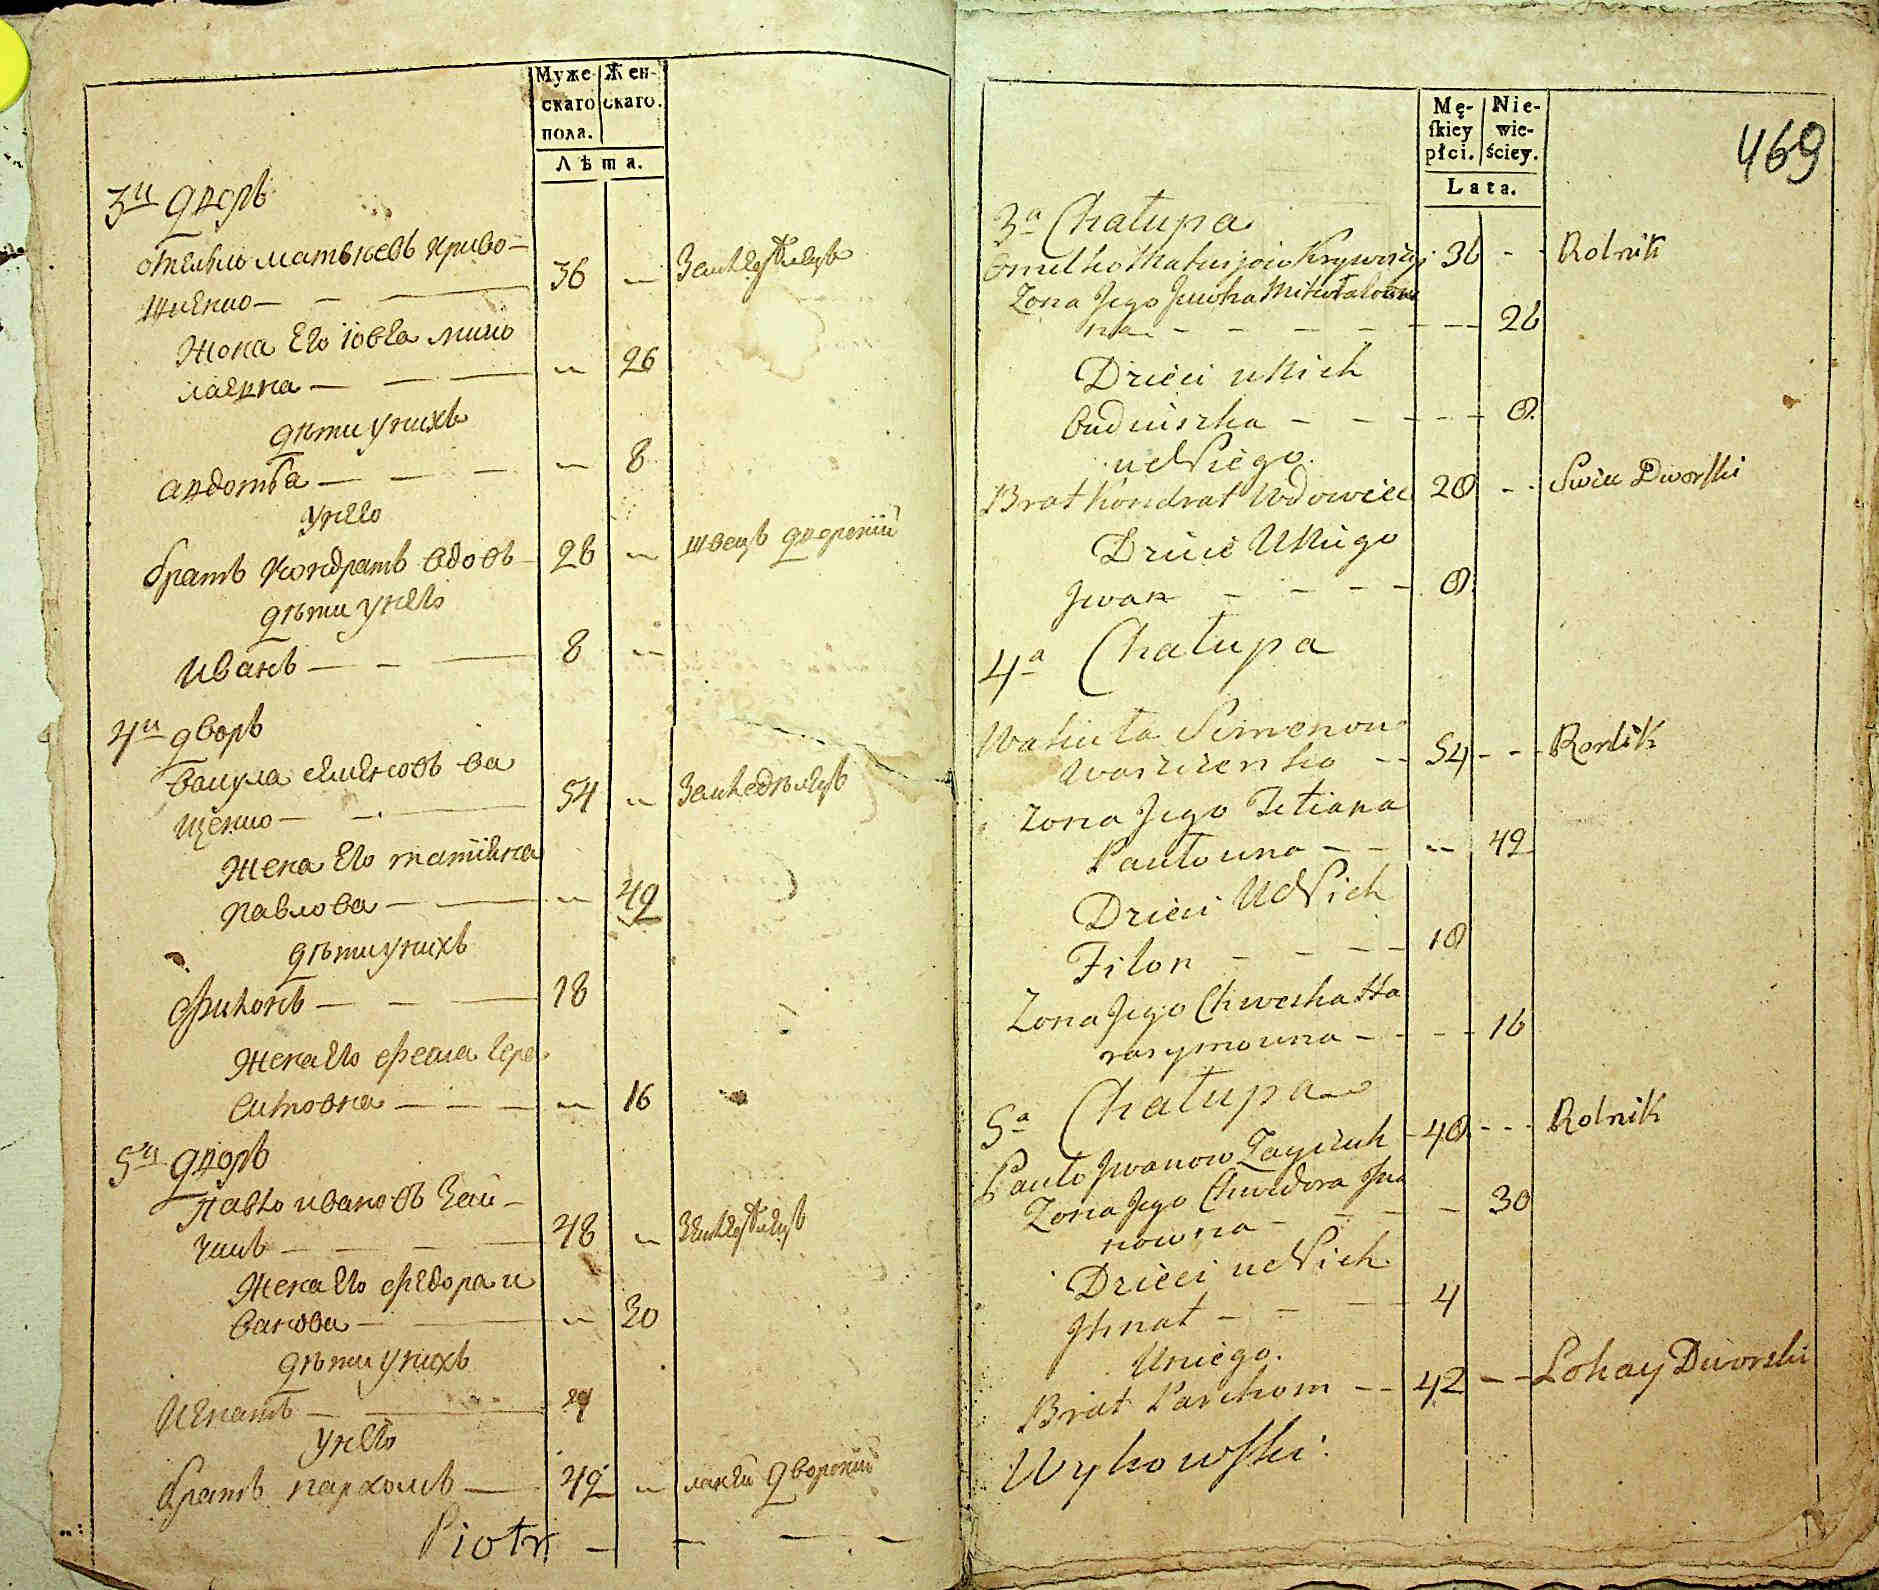 Муже-
скаго
пола.
Жен-
скаго.
Лѣта.
3й дворъ
омелко матвѣевъ криво-
шиенко — — 36 —
Жона Его Ювга мико
лаевна — — — 26
дѣти унихъ
авдотья — — — 8
унего
братъ кондратъ вдовъ 28 — швецъ дворскій
дѣти унего
иванъ — — 8 —
4й дворъ
вакула семеновъ ва
щенко — — 54 —
жена Его татіяна
павлова — — — 42
дѣти унихъ
филонъ — — 18
жена Его
16
5й дворъ
павло ивановъ Зай-
чикъ — — 48 —
жена Его федора и
ванова — — 30
дѣти унихъ
игнатъ — 4
унего
братъ пархомъ — 42 — лакей дворскій
Piotr — — — —
Mę-
skiey
płci.
Nie-
wie-
ściey.
Lata.
469
3a Chałupa
Omelko Matwijow 36 - - Rolnik
Zona Jego Juwha Mikołaiow
na - - - - - 26
Dzieci u Nich
- - - - 8
u Niego
Brat Kondrat Wdowiec 28 - - Dworski
Dzieci U Niego
Jwan - - - - 8
4a Chałupa
Wakuła Semenow
Waszczenko - - 54 - - - Ronlik
Zona Jego Tetiana
Pawłowna - - - - 42
Dzieci U Nich
Filon - - - - 18
Zona Jego Chweska Ha
rasymowna - - - - 16
5a Chałupa
Pawło Jwanow Zayczuk - 48 - - - Rolnik
Zona Jego Chwedora Jwa
nowna - - - - 30
Dzieci u Nich
Jhnat - - - - 4
U niego
Brat Parchom - - 42 - - Lokay Dworski
Wykowski